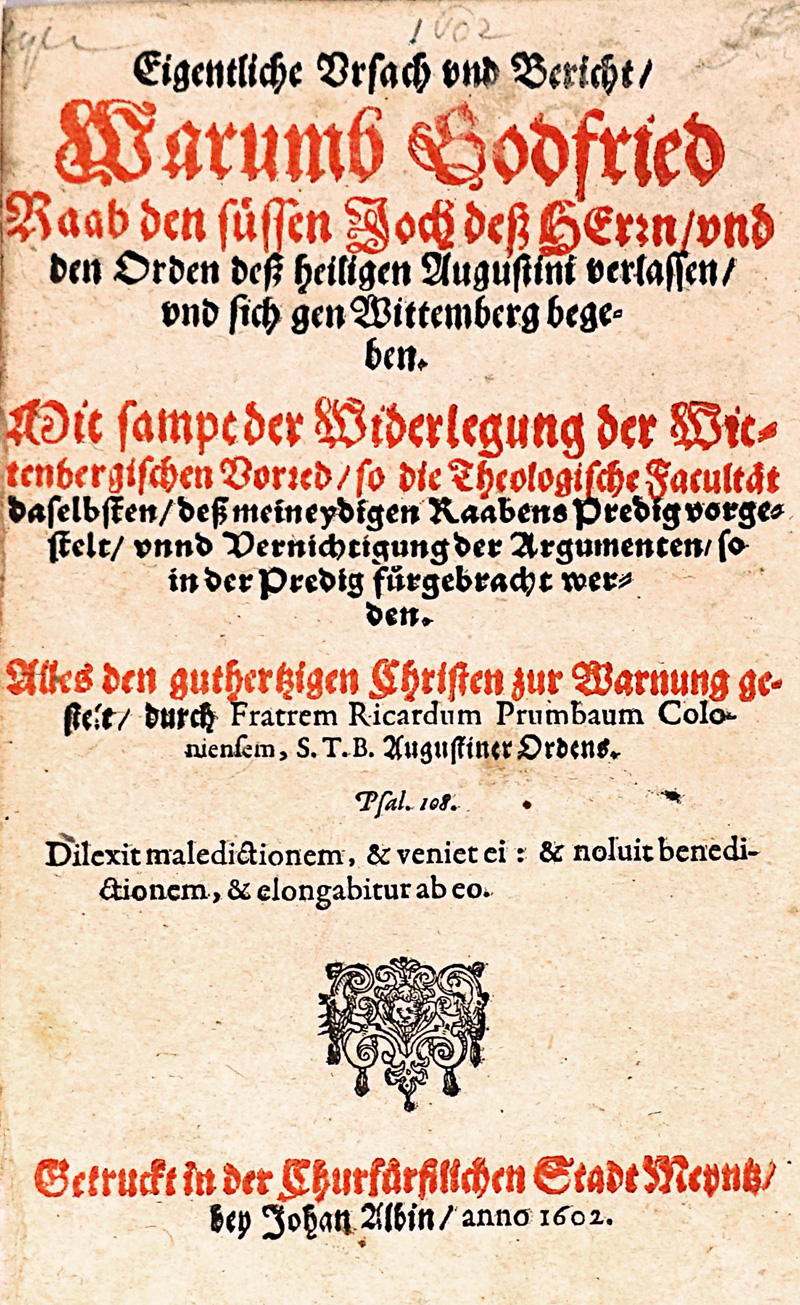 1602
Eigentliche Vrsach vnd Bericht/
Warumb Godfried
Raab den süssen Joch deß HErrn/vnd
den Orden deß heiligen Augustini verlassen/
vnd sich gen Wittemberg bege-
ben.
Mit sampt der Widerlegung der Wit-
tenbergischen Vorred/so die Theologische Facultät
daselbsten/deß meineydigen Raabens Predig vorge-
stelt/ vnnd Vernichtigung der Argumenten/so
in der Predig fürgebracht wer-
den.
Alles den guthertzigen Christen zur Warnung ge-
stelt/ durch Fratrem Ricardum Prumbaum Colo-
niensem, S.T.B. Augustiner Ordens.
Psal. 108.
Dilexit maledictionem, & veniet ei: & noluit benedi-
ctionem, & elongabitur ab eo.
Getruckt in der Churfürstlichen Stadt Meyntz/
bey Johan Albin/ anno 1602.